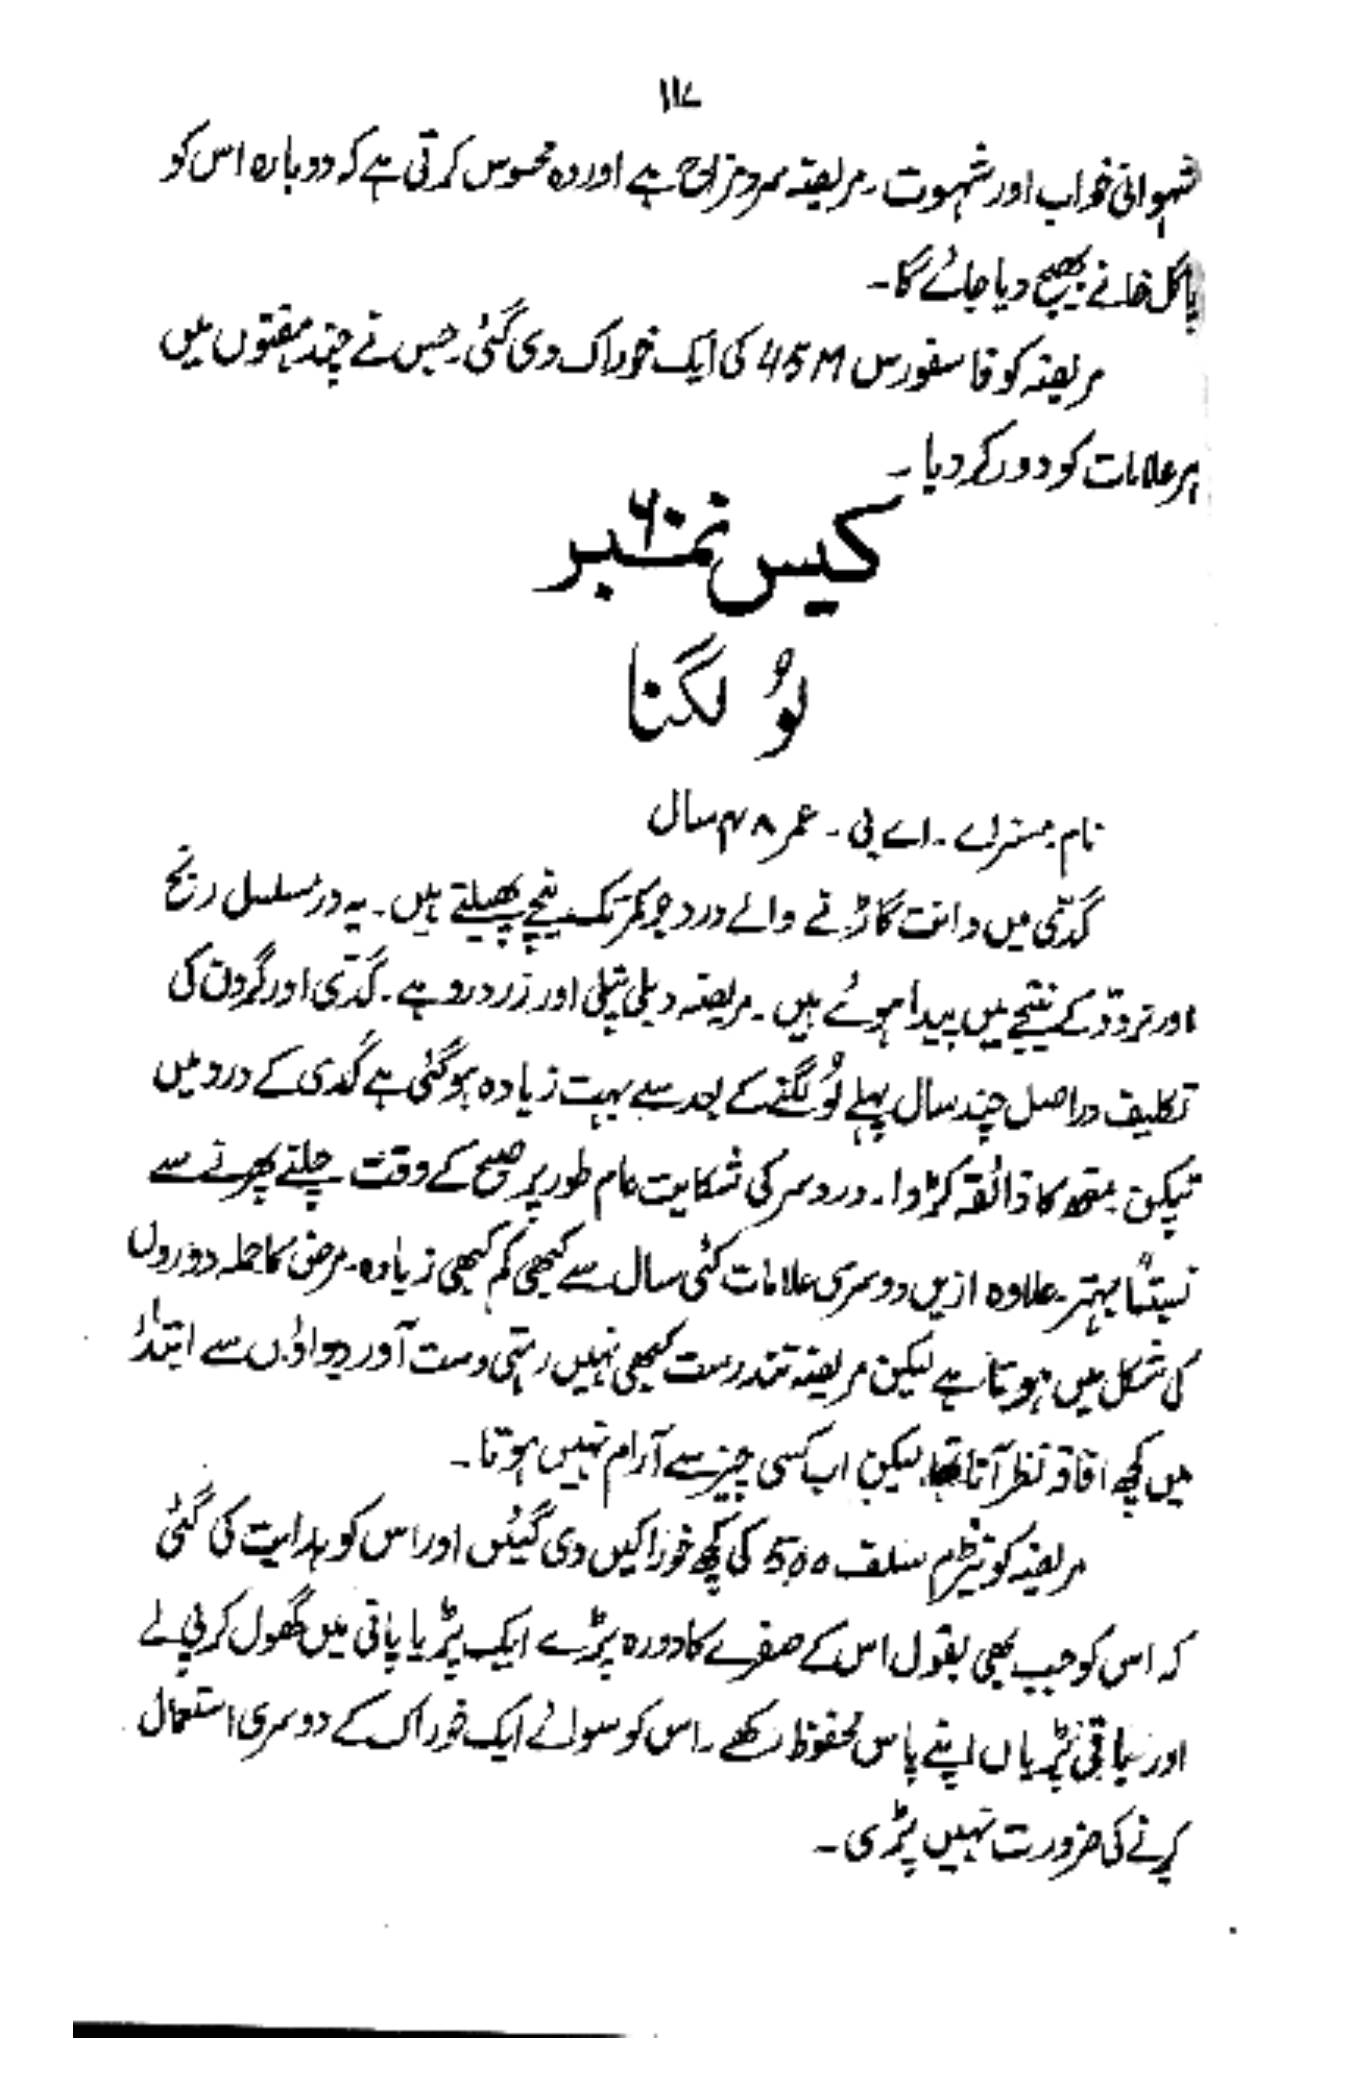 ۱۱۷
شہوانی خواب اور شہوت۔ مریضہ سرد مزاج ہے اور وہ محسوس کرتی ہے کہ دوبارہ اس کو
پاگل خانے بھیج دیا جائے گا۔
مریضہ کو فاسفورس 45M کی ایک خوراک دی گئی۔ جس نے چند ہفتوں میں
ہر علامات کو دور کر دیا۔
کیس نمبر ۶۰
لُو لگنا
نام مسز اے۔ اے بی۔ عمر ۴۸ سال
گدّی میں دانت گاڑنے والے درد جو کمر تک نیچے پھیلتے ہیں۔ یہ درد مسلسل رنج
اور تردّد کے نتیجے میں پیدا ہوئے ہیں۔ مریضہ دبلی پتلی اور زرد رو ہے۔ گدّی اور گردن کی
تکلیف دراصل چند سال پہلے لُو لگنے کے بعد سے بہت زیادہ ہو گئی ہے گدی کے درد میں
ٹپکن۔ منھ کا ذائقہ کڑوا۔ درد سر کی شکایت عام طور پر صبح کے وقت۔ چلنے پھرنے سے
نسبتاً بہتر۔ علاوہ ازیں دوسری علامات کئی سال سے کبھی کم کبھی زیادہ۔ مرض کا حملہ دوروں
کی شکل میں ہوتا ہے لیکن مریضہ تندرست کبھی نہیں رہتی دست آور دواؤں سے ابتداً
میں کچھ افاقہ نظر آتا تھا۔ لیکن اب کسی چیز سے آرام نہیں ہوتا۔
مریضہ کو نیٹرم سلف 500 کی کچھ خوراکیں دی گئیں اور اس کو ہدایت کی گئی
کہ اس کو جب بھی بقول اس کے صفرے کا دورہ پڑے ایک پڑیا پانی میں گھول کر پی لے
اور باقی پڑیاں اپنے پاس محفوظ رکھے۔ اس کو سوائے ایک خوراک کے دوسری استعمال
کرنے کی ضرورت نہیں پڑی۔